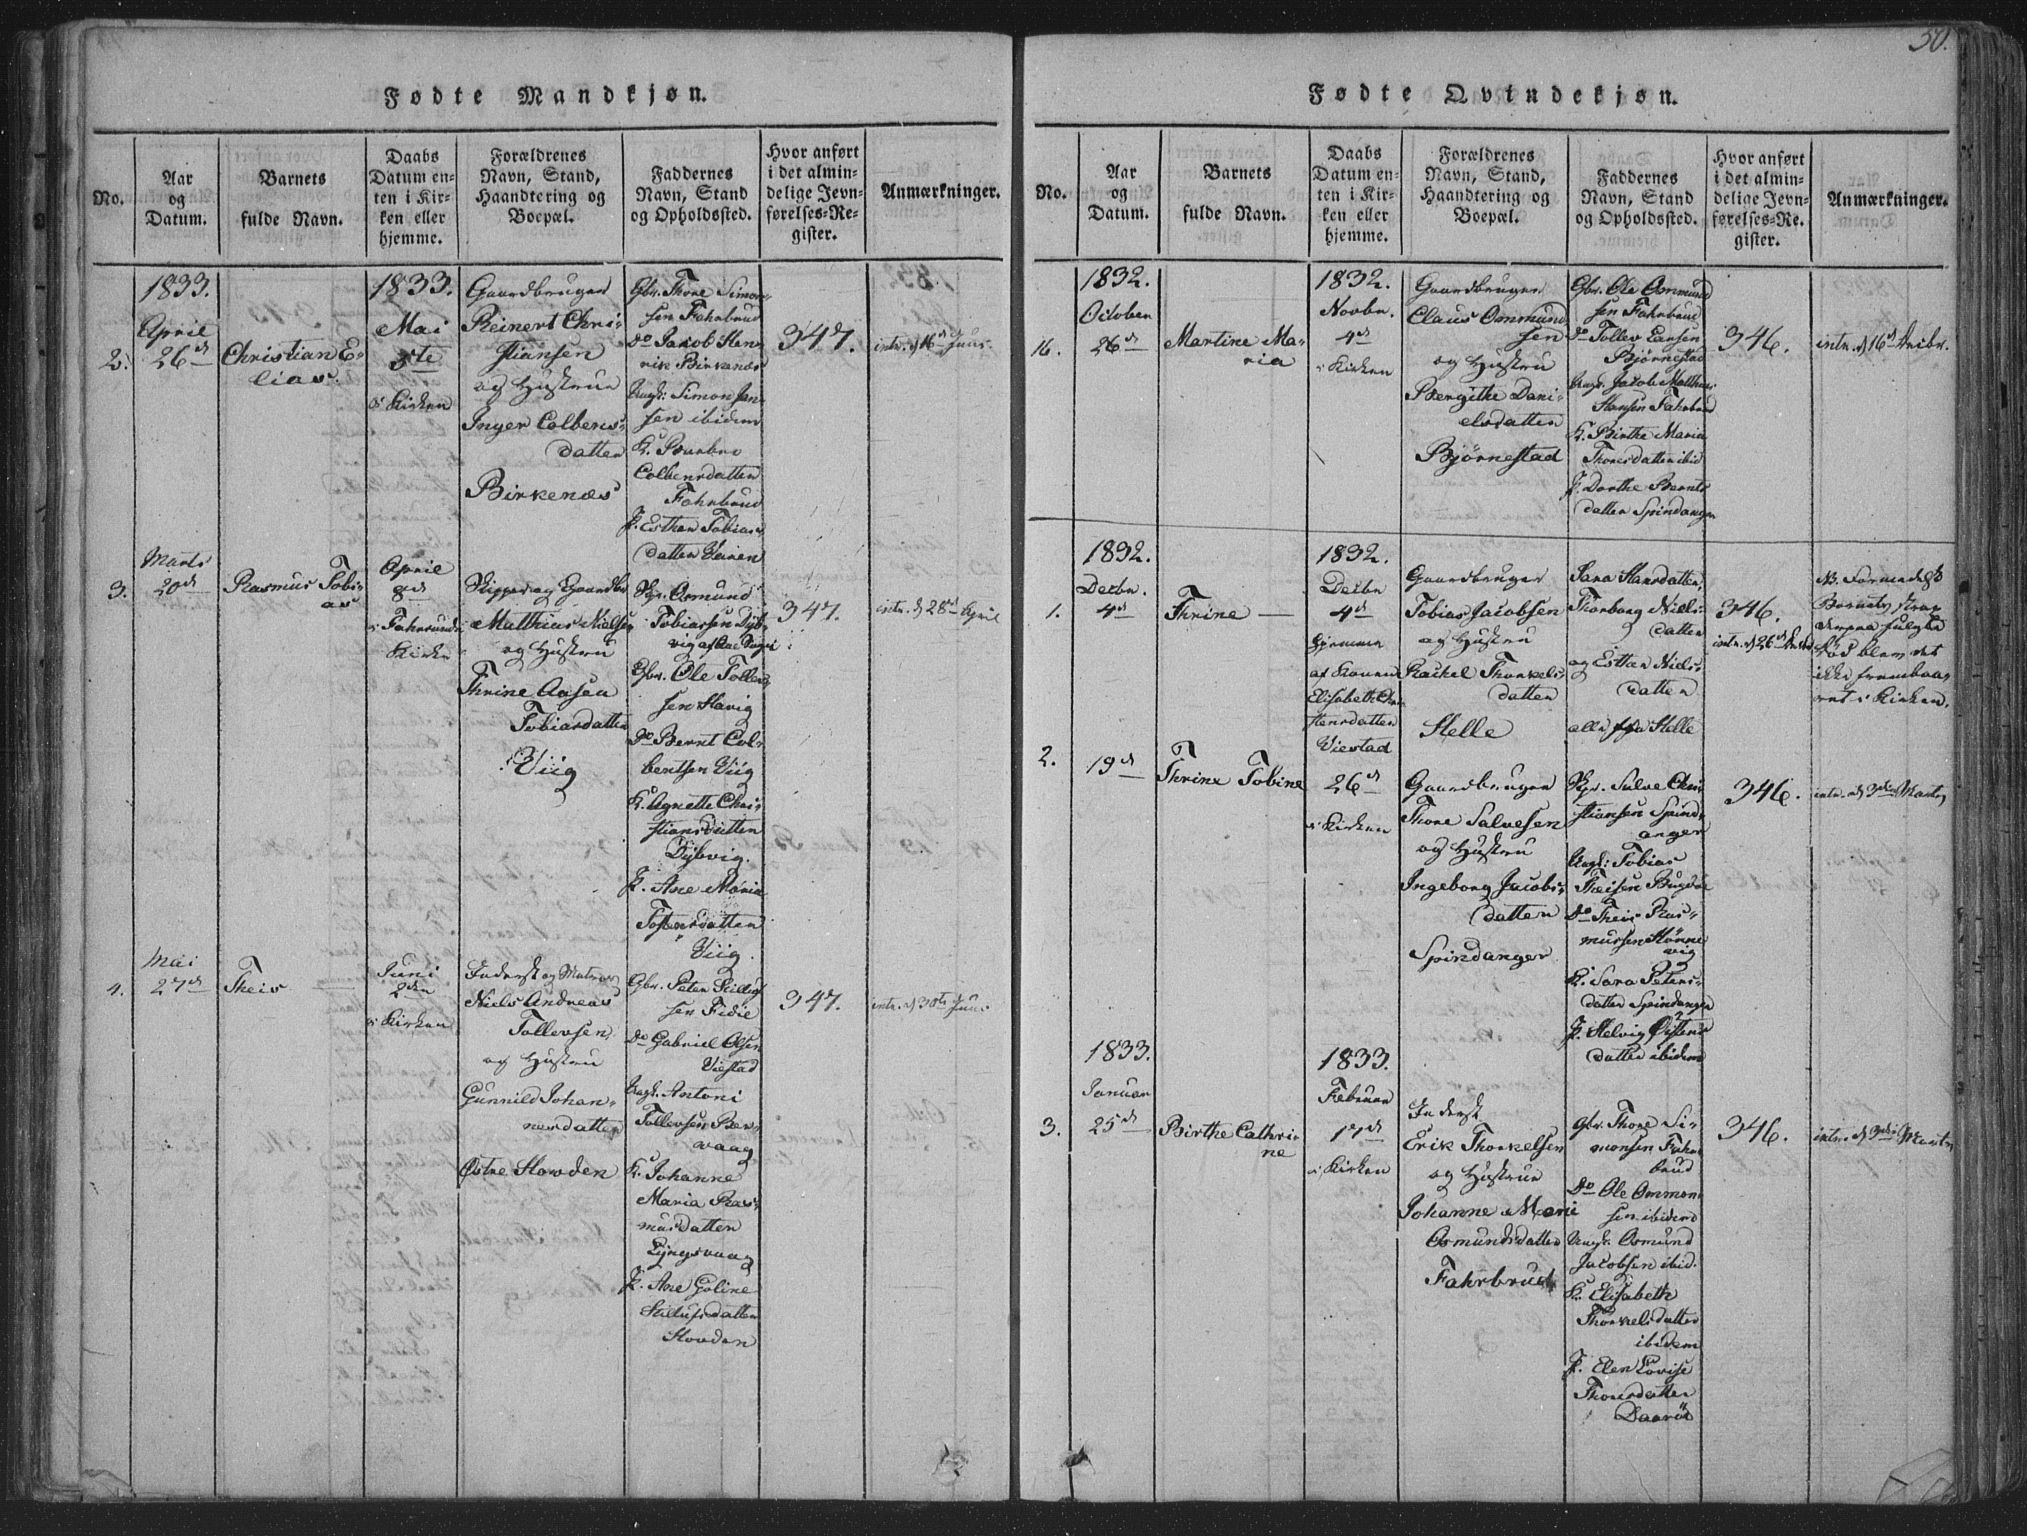 50.
Fødte Mandkjøn.
No.
Aar
og
Datum.
Barnets
fulde Navn.
Daabs
Datum en-
ten i Kir-
ken eller
hjemme.
Forældrenes
Navn, Stand,
Haandtering og
Boepæl.
Faddernes
Navn, Stand
og Opholdssted.
Hvor anført
i det almin-
delige Jevn-
førelses-Re-
gister.
Anmærkninger.
2.
1833.
April
26d
Christian E-
lias.
1833.
Mai
5te
i Kirken
Gaardbruger
Reinert Chri-
stiansen
og Hustrue
Inger Colbens-
datter
Birkenæs
Gbr. Thore Simon-
sen Fahrbrud
Do Jacob Hen-
rik Birkenæs
Ungk: Simon Jan-
sen ibidem
K. Barbro
Colbensdatter
Fahrbrud
P. Esther Tobias-
datter
347.
intr. d 16d Juni
3.
Marts
20d
Rasmus Tobi-
as
April
8d
i Fahrsunds
Kirke
Skipper og Gaardbr
Matthias Nielsen
og Hustru
Thrine Aasea
Tobiasdatter
Viig
Skpr. Osmund
Tobiassen Dyb-
vig
Gbr. Ole Tollev-
sen Havig
Do Bernt Col-
bentsen Viig
K. Agnette Chri-
stiansdatter
Dybvig.
P. Ane Maria
datter
Viig.
347.
intr. d 28d April
4.
Mai
27d
Theis
Juni
2den
i Kirken
Inderst og Matros
Niels Andreas
Tollevsen
og Hustru
Gunnild Johan-
nesdatter
Østre Hovden
Gbr. Peter
sen Fidie
Do Gabriel Olsen
Viestad
Ungk. Antoni
Tollevsen Ber-
vaag
K. Johanne
Maria Ras-
musdatter
Lyngsvaag
P. Ane Goline
datter
Hovden
347.
intr. d 30te Juni
Fødte Qvindekjøn.
No.
Aar
og
Datum.
Barnets
fulde Navn.
Daabs
Datum en-
ten i Kir-
ken eller
hjemme.
Forældrenes
Navn, Stand,
Haandtering og
Boepæl.
Faddernes
Navn, Stand
og Opholdssted.
Hvor anført
i det almin-
delige Jevn-
førelses-Re-
gister.
Anmærkninger.
16.
1832.
October
26d
Martine Ma-
ria
1832.
Novbr.
4d
i Kirken
Gaardbruger
Claus Ommund-
sen
og Hustru
Bergithe Dani-
elsdatter
Bjørnestad
Gbr. Ole Ommund
sen Fahrbrud
Do Tollev Larsen
Bjørnestad
Ungk. Jacob Matthias
Hansen Fahrbrud
K. Birthe Maria
Thoresdatter ibid
P. Dorthe Bernts
datter Spindanger
346.
intr. d 16d Decbr.
1.
1832.
Decbr.
4d
Thrine
1832.
Decbr
4d
hjemme
af Konen
Elisabeth Chri-
stensdatter
Viestad
Gaardbruger
Tobias Jacobsen
og Hustru
Rachel Thorkels-
datter
Helle
Sara Hansdatter,
Thorborg Niels-
datter
og Esther Niels-
datter
alle fra Helle
346.
intr. d 26d Decbr
NB. Formedelst
Barnets strax
derpaa fulgte
Død blev det
ikke frembaa-
ret i Kirken.
2.
19d
Thrine Tobine
26d
i Kirken
Gaardbruger
Thore Salvesen
og Hustru
Ingeborg Jacobs-
datter
Spindanger
Skpr. Salve Chri-
stiansen Spind-
anger
Ungk: Tobias
Theisen Bugdø
Do Theis Ras-
mussen Hønne
vig
K. Sara Peters-
datter Spindanger
P. Helvig Østens
datter ibidem
346.
intr. d 3die Marts
3.
1833.
Januar
25d
Birthe Cathri-
ne
1833.
Februar
17d
i Kirken
Inderst
Erik Thorkelsen
og Hustrue
Johanne Marie
Osmundsdatter
Fahrbrud
Gbr. Thore Si-
monsen Fahr-
brud
Do Ole Ommon-
sen ibidem
Ungk. Osmund
Jacobsen ibid.
K. Elisabeth
Thorkelsdatter
ibidem
P. Elen Lovise
Thoresdatter
346.
intr. d 3die Marts